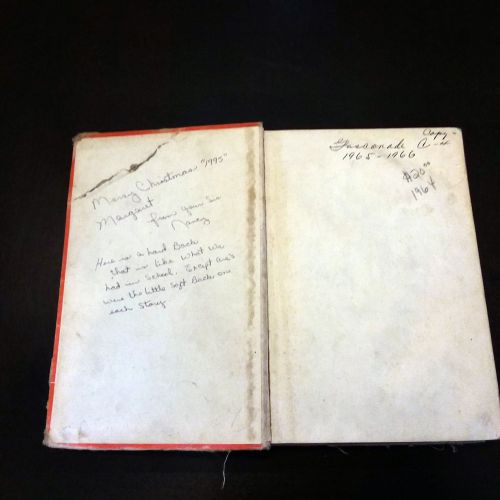 Merry Christmas "1995"
Margaret
from your Sis
Nancy
Here is a hard Back
that is like What We
had in School. Except our's
were the little Soft Back one
each Story
Copy -
Gasconade C-4
1965-1966
$20.00
1964